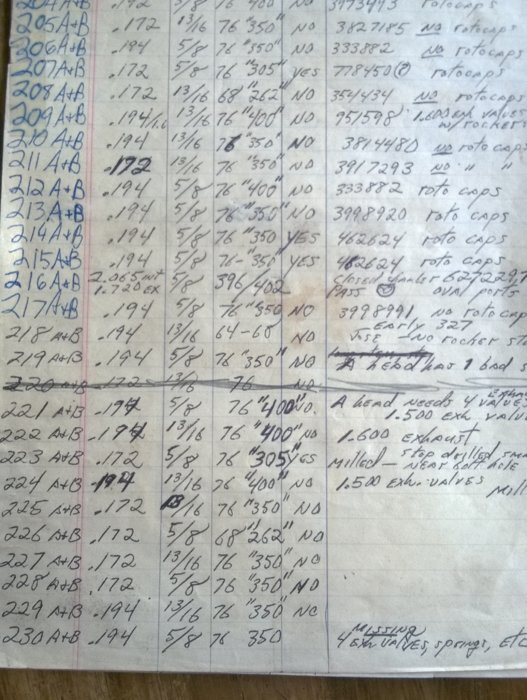 204A+B .192 5/8 76 "400" NO 3973493 rotocaps
205A+B .172 13/16 76 "350" NO 3827185 NO rotocaps
206A+B .194 5/8 76 "350" NO 333882 NO rotocaps
207A+B .172 5/8 76 "305" YES 778450(?) rotocaps
208A+B .172 13/16 68 "262" NO 354434 NO rotocaps
209A+B .194/1.6 13/16 76 "400" NO 951598 1.600 exh valves
w/rockers
210A+B .194 13/16 76 "350" NO 3814480 NO roto caps
211A+B .172 13/16 76 "350" NO 3917293 NO " "
212A+B .194 5/8 76 "400" NO 333882 roto caps
213A+B .194 5/8 76 "350" NO 3998920 roto caps
214A+B .194 5/8 76 "350 YES 462624 roto caps
215A+B .194 5/8 76 "350 YES 462624 roto caps
216A+B 2.065 int 5/8 396/402 closed 627229
1.720 EX Pass oval ports
217A+B .194 5/8 76 "350 NO 3998991 NO roto caps
218 A+B .194 13/16 64-68 NO Early 327
NO rocker
219 A+B .194 5/8 76 "350" NO A head has 1 bad
220 A+B .172 13/16 76 NO
221 A+B .194 5/8 76 "400" NO. A head needs 4 valves
1.500 exh. valves
222 A+B .194 13/16 76 "400" NO 1.600 exhaust
223 A+B .172 5/8 76 "305" YES Milled - stop drilled
near bolt hole
224 A+B .194 13/16 76 "400" NO 1.500 exh. valves
225 A+B .172 13/16 76 "350" NO
226 A+B .172 5/8 68 "262" NO
227 A+B .172 13/16 76 "350" NO
228 A+B .172 5/8 76 "350" NO
229 A+B .194 13/16 76 "350" NO
230 A+B .194 5/8 76 350 4 MISSING
exh valves, springs, etc